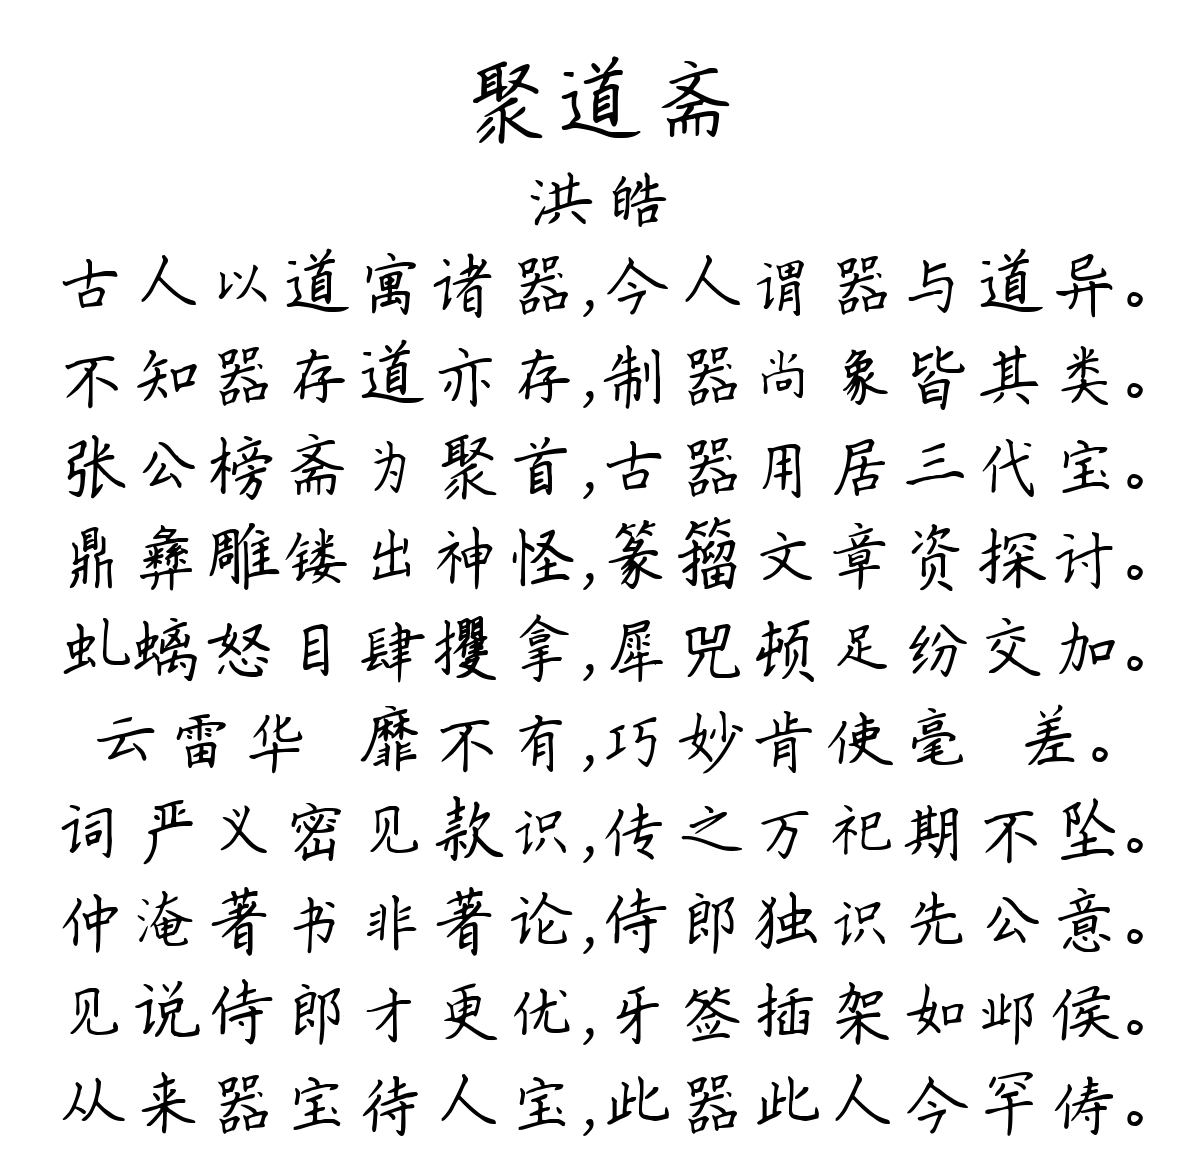 聚道斋
洪皓
古人以道寓诸器,今人谓器与道异。
不知器存道亦存,制器尚象皆其类。
张公榜斋为聚首,古器用居三代宝。
鼎彝雕镂出神怪,篆籀文章资探讨。
虬螭怒目肆攫拿,犀兕顿足纷交加。
云雷华 靡不有,巧妙肯使毫 差。
词严义密见款识,传之万祀期不坠。
仲淹著书非著论,侍郎独识先公意。
见说侍郎才更优,牙签插架如邺侯。
从来器宝待人宝,此器此人今罕俦。